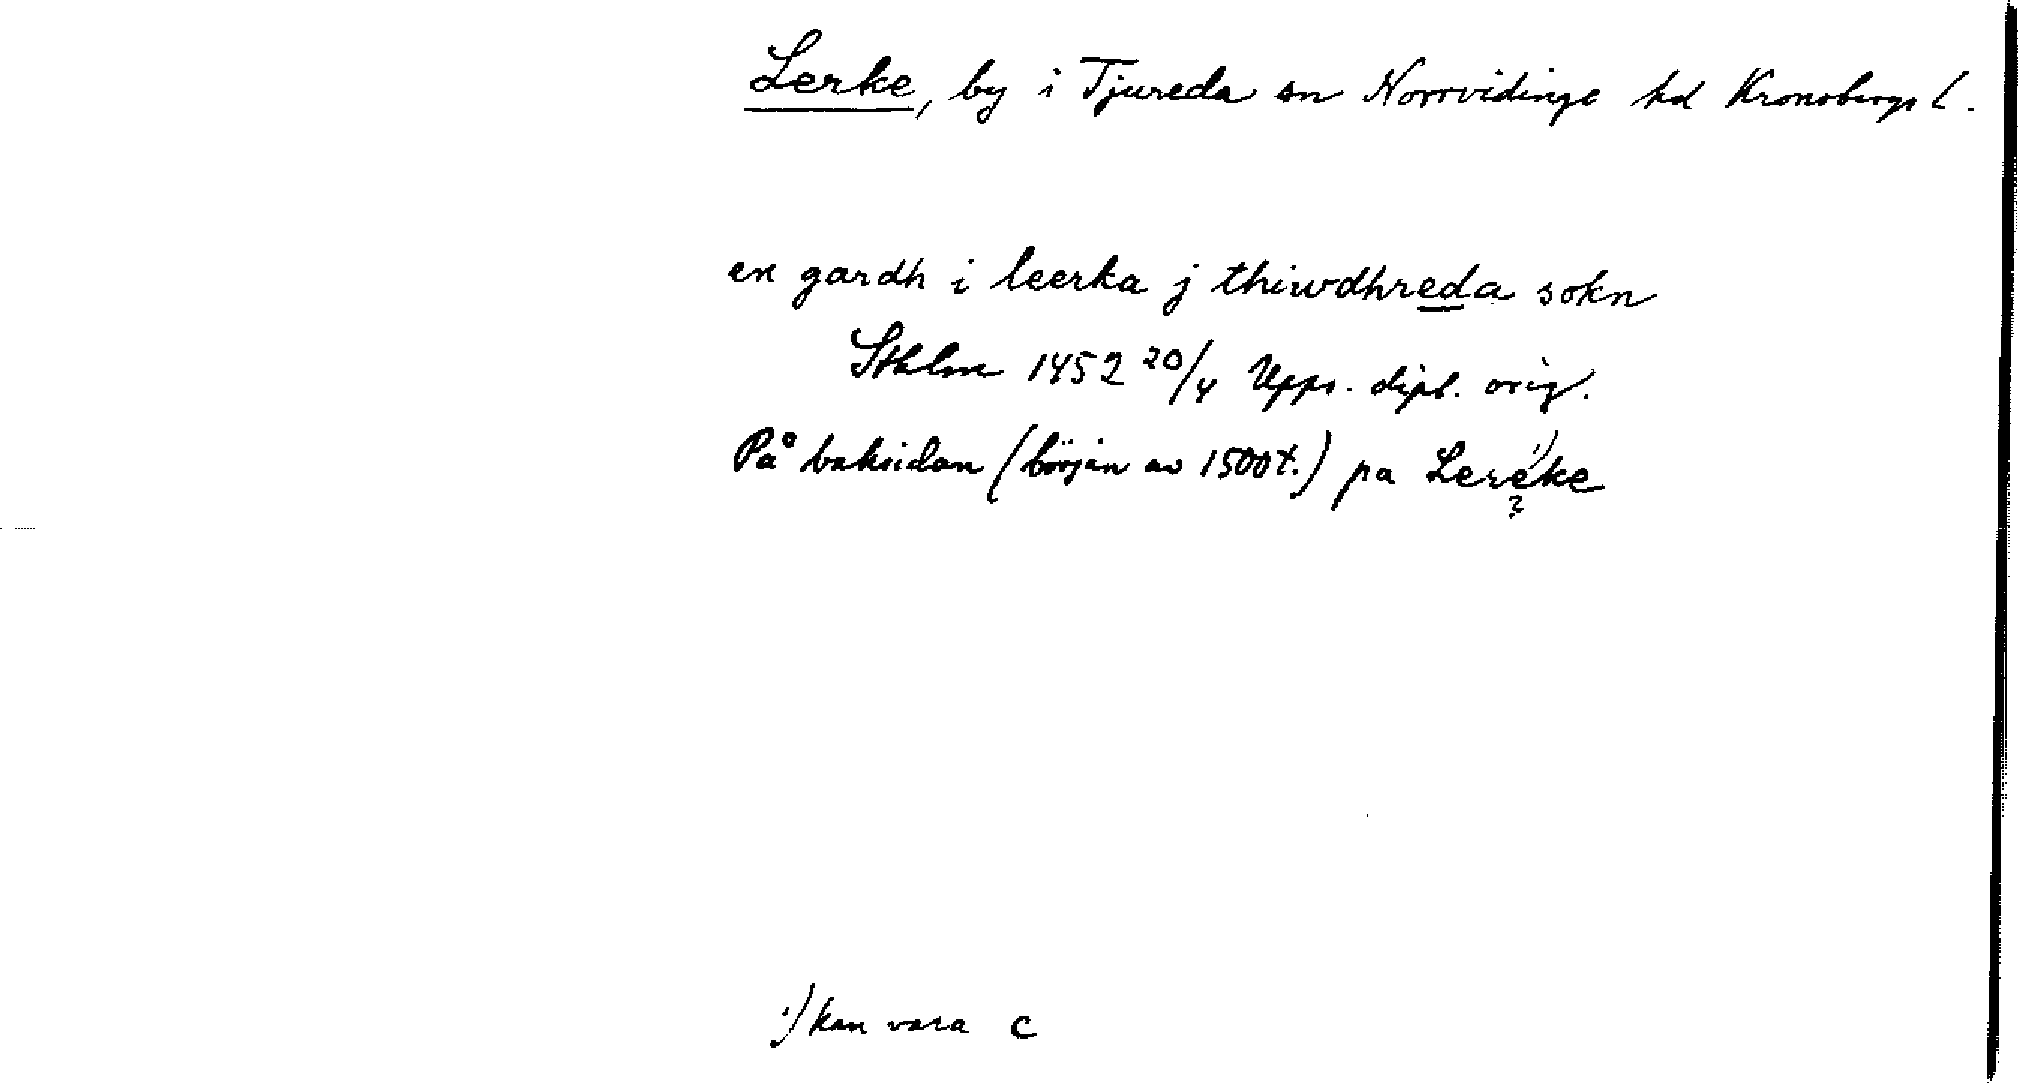 Lerke, by i Tjureda sn Norrvidinge hd Kronobergs l.
en gardh i leerka j thiwdhreda sokn
Sthlm 1452 20/4 Upps. dipl. orig.
På baksidan (början av 1500t.) pa Lereke 1)
?
1) kan vara c